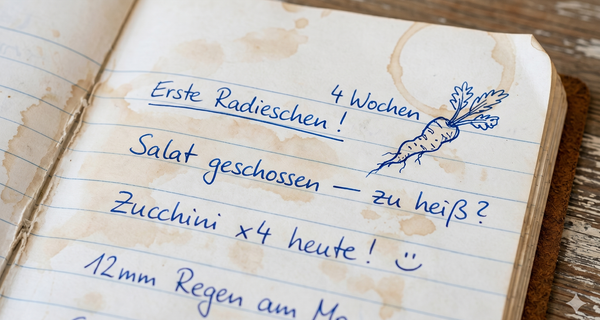 Erste Radieschen! 4 Wochen
Salat geschossen — zu heiß?
Zucchini x4 heute! :)
12mm Regen am